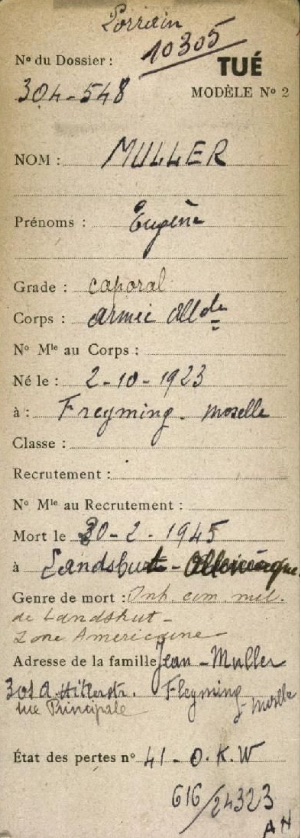 Lorrain
10305
N° du Dossier :
TUÉ
304-548
MODÈLE N° 2
NOM : MULLER
Prénoms : Eugène
Grade : caporal
Corps : armée Allde
N° Mle au Corps :
Né le : 2-10-1923
à : Freyming - Moselle
Classe :
Recrutement :
N° Mle au Recrutement :
Mort le 20-2-1945
à Landshut - Allemagne
Genre de mort : Inh. cim. mil.
de Landshut -
Zone Américaine
Adresse de la famille Jean - Muller
301 A. Hitlerstr. Freyming
rue Principale - Moselle
État des pertes n° 41-O.K.W
616/24323
AN